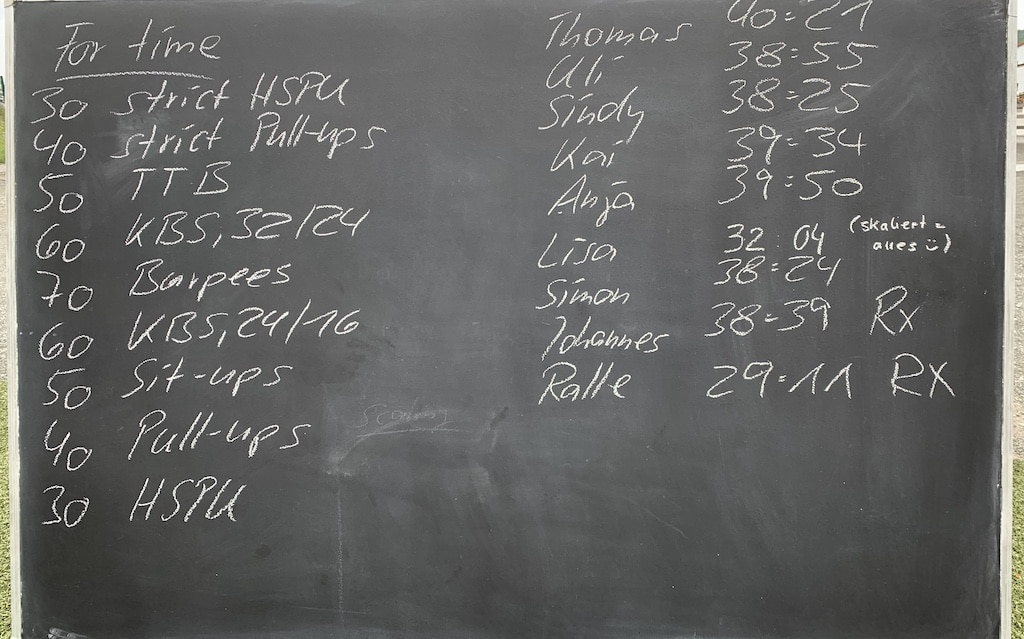 For time
30 strict HSPU
40 strict Pull-ups
50 TTB
60 KBS, 32/24
70 Burpees
60 KBS, 24/16
50 Sit-ups
40 Pull-ups
30 HSPU
Thomas 40:21
Uli 38:55
Sindy 38:25
Kai 39:34
Anja 39:50
Lisa 32:04 (skaliert =
alles ü)
Simon 38:24
Johannes 38:39 Rx
Ralle 29:11 RX